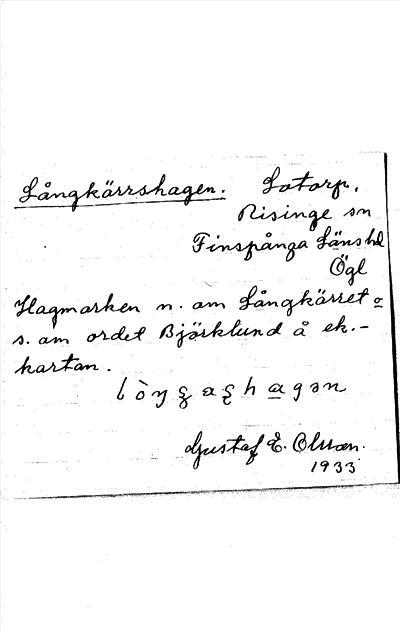 Långkärrshagen. Lotorp.
Risinge sn
Finspånga Läns hd
Ögl
Hagmarken n. om Långkärret o
s. om ordet Björklund å ek.-
kartan.
Gustaf E. Olsson.
1933